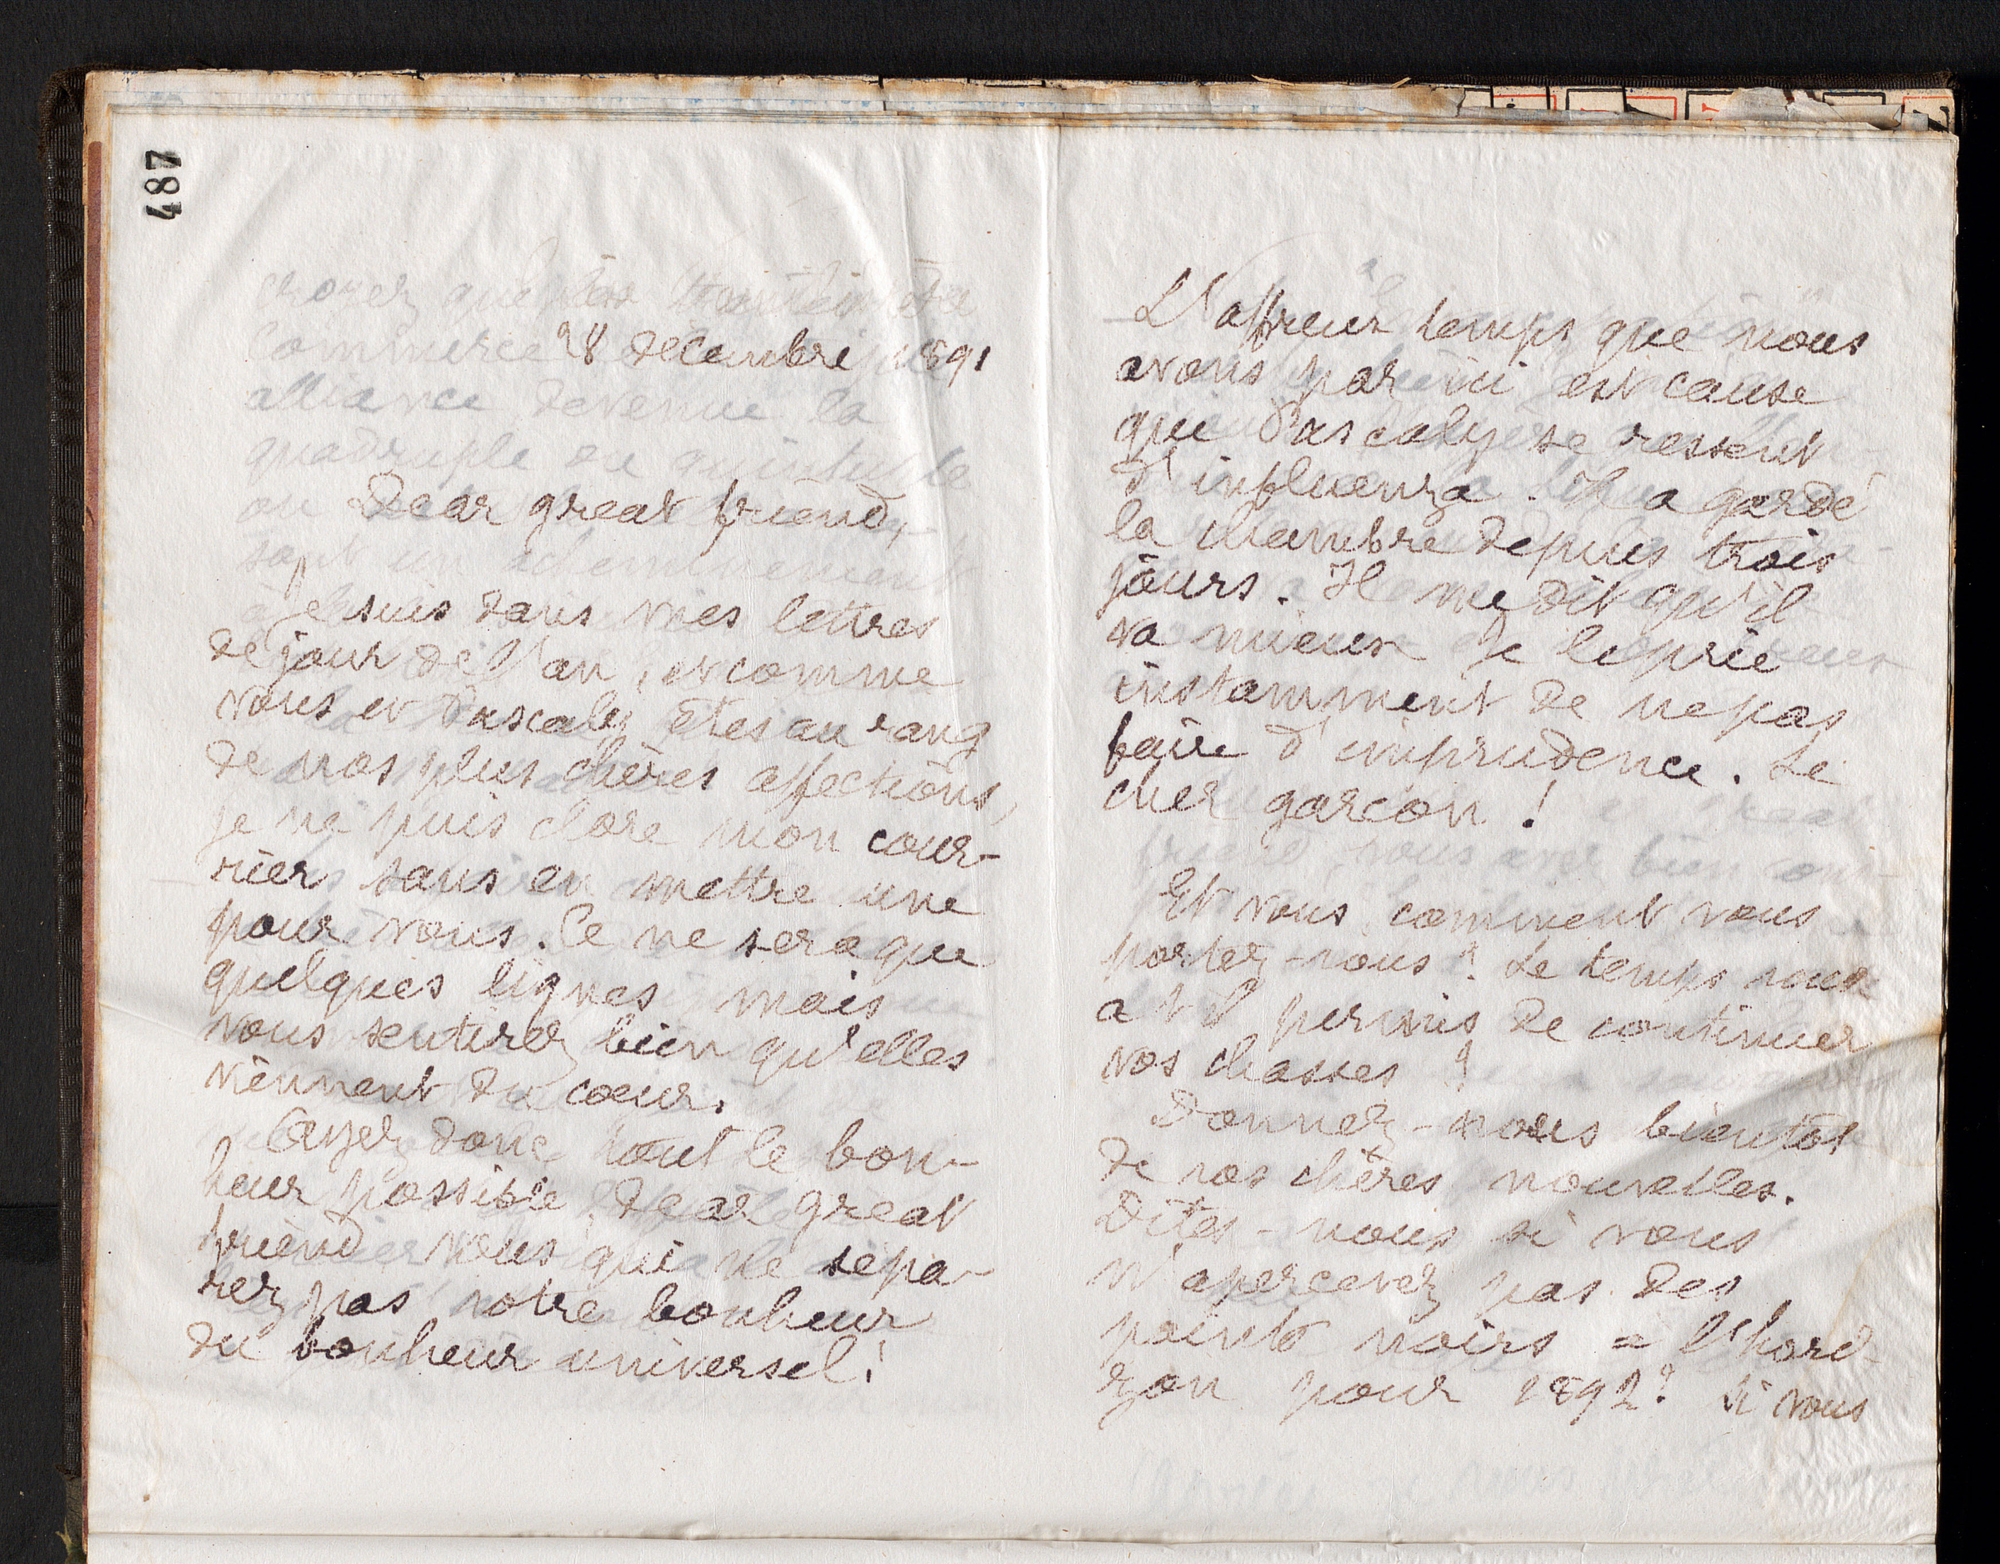 487
28 decembre 1891
Dear great friend,
Je suis dans mes lettres
de jour de l'an, et comme
vous et Pascaly êtes au rang
de nos plus chères affections,
je ne puis clore mon cour-
rier sans en mettre une
pour vous. Ce ne sera que
quelques lignes mais
vous sentirez bien qu'elles
viennent du cœur.
Ayez donc tout le bon-
heur possible, dear great
friend vous qui ne sépa-
rez pas votre bonheur
du bonheur universel!
L'affreux temps que nous
avons par ici est cause
que Pascaly se ressent
d'influenza. Il a gardé
la chambre depuis trois
jours. Il me dit qu'il
va mieux Je le prie
instamment de ne pas
faire d'imprudence. Le
cher garçon!
Et vous, comment vous
portez-vous? Le temps vous
a t'il permis de continuer
vos chasses?
Donnez-nous bientôt
de vos chères nouvelles.
Dites-nous si vous
n'apercevez pas des
points noirs à l'hori-
zon pour 1892? Si vous